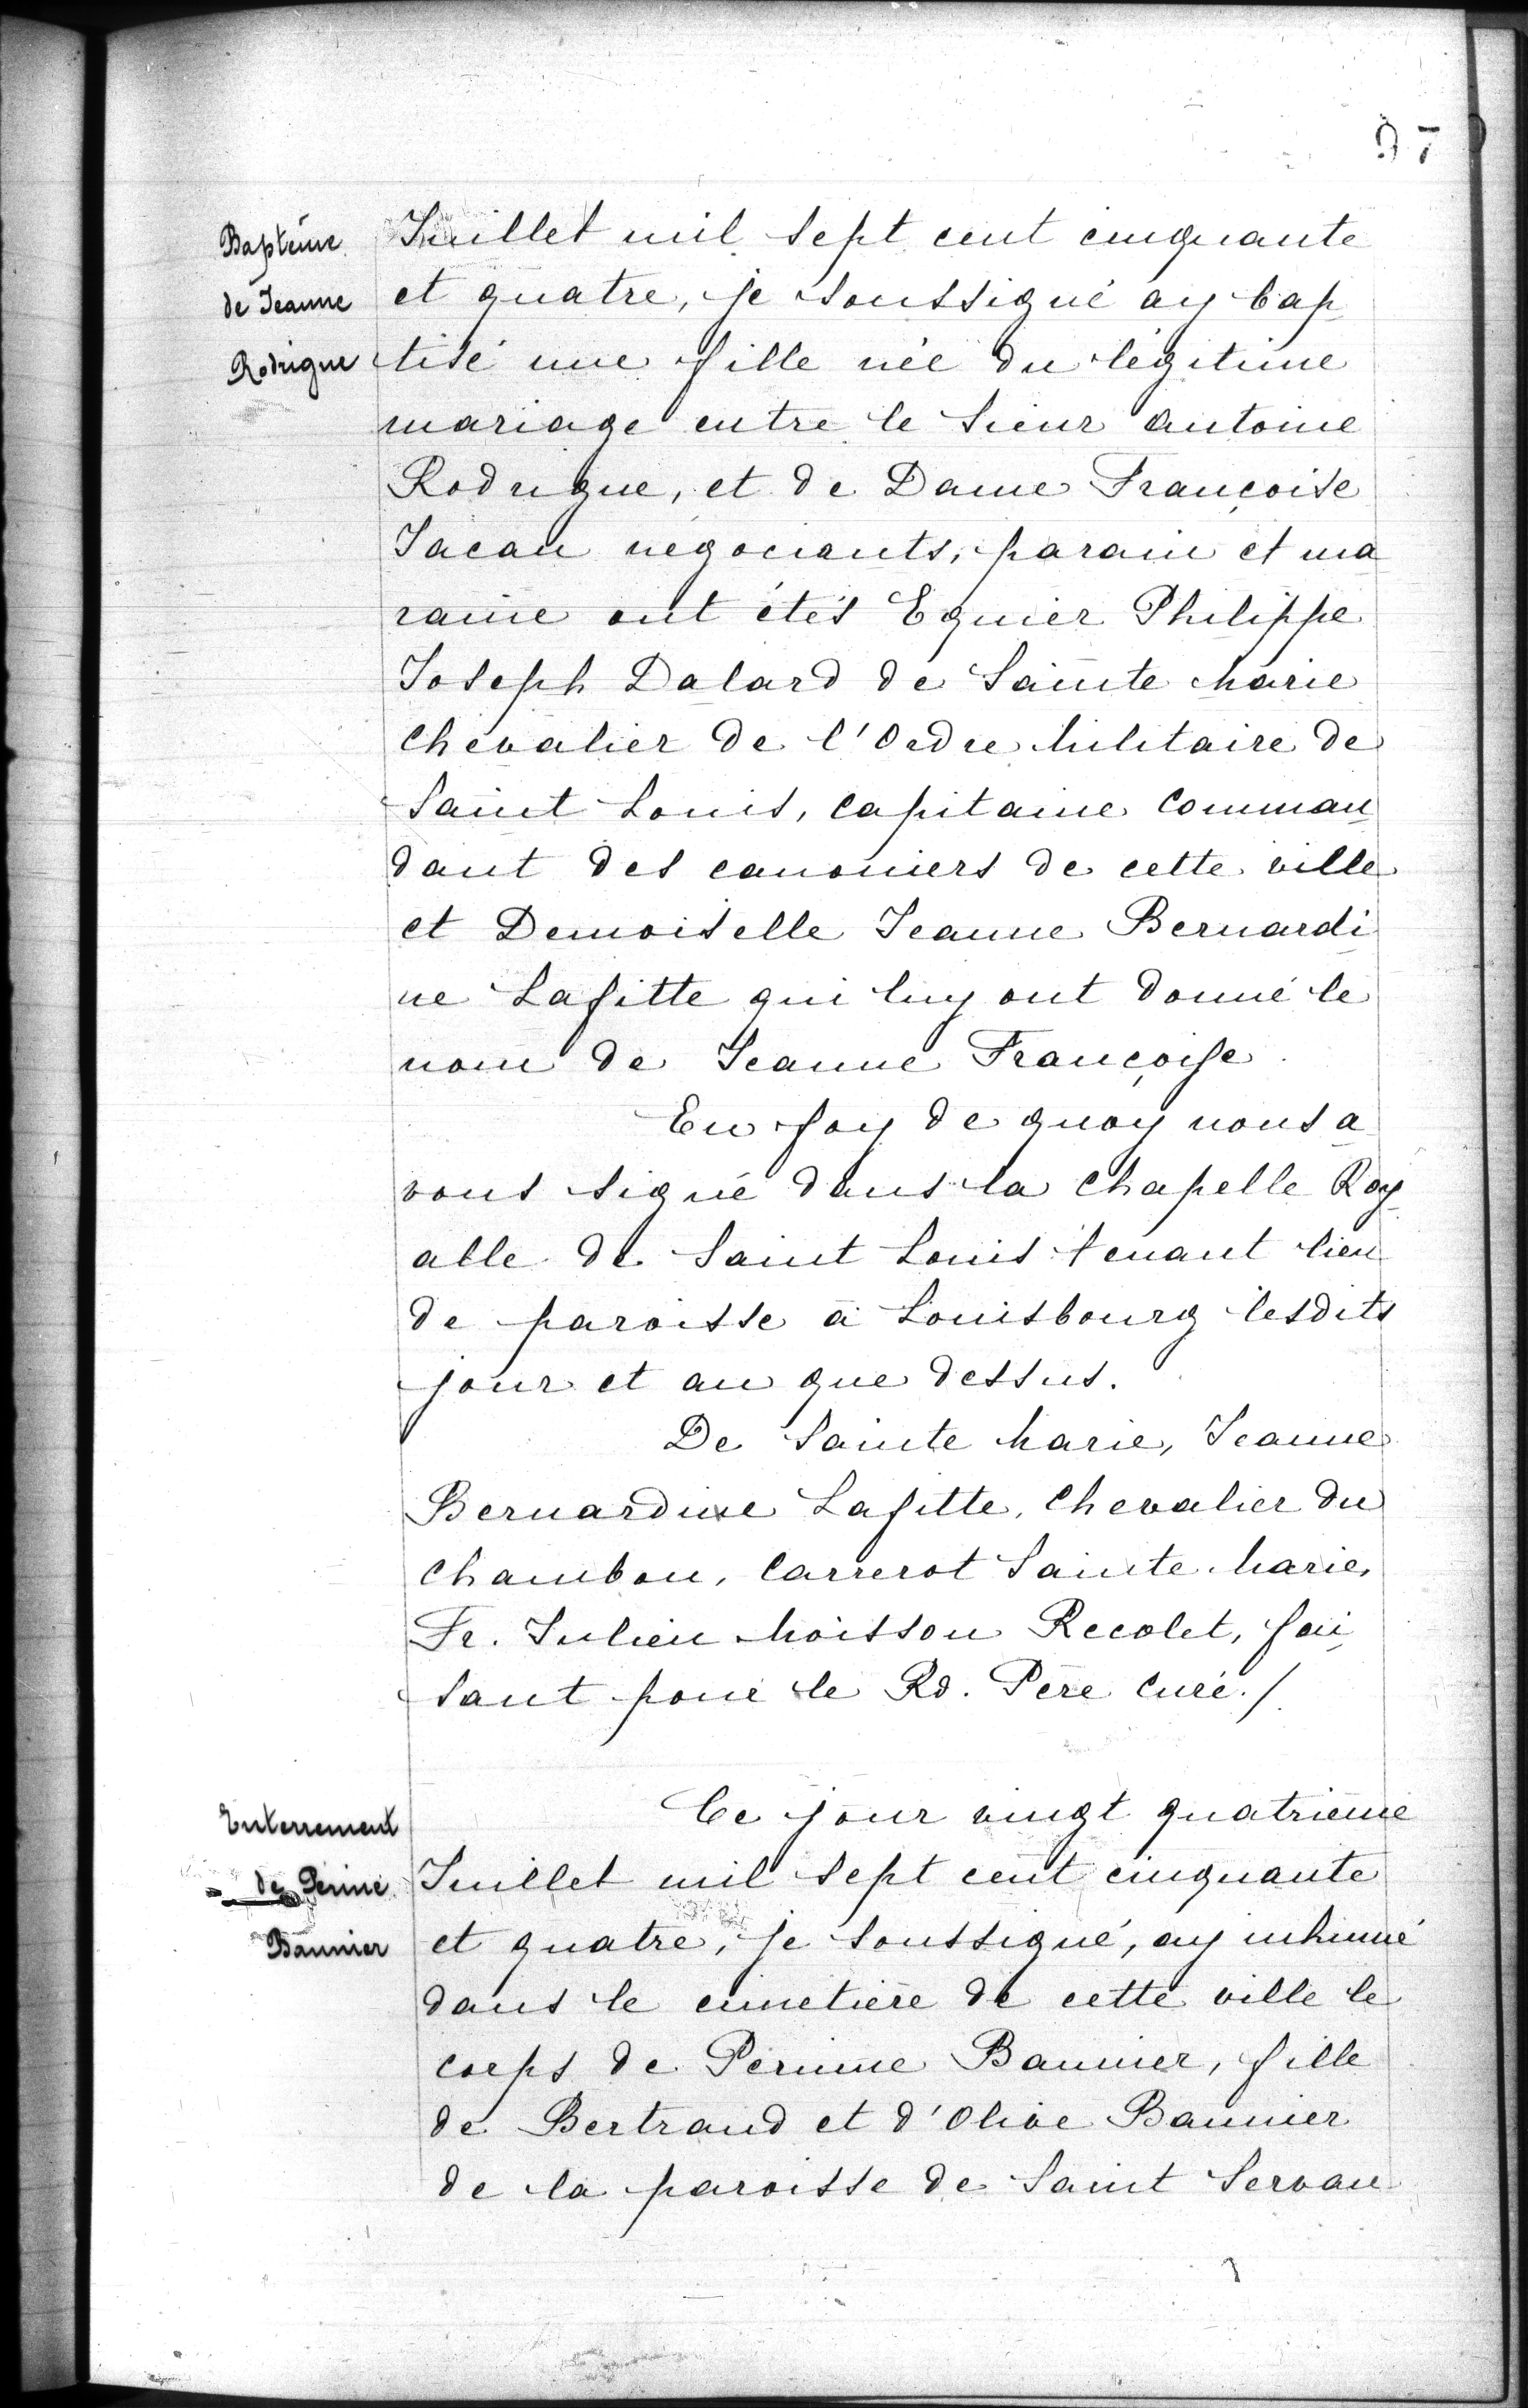 97
Baptême
de Jeanne
Rodrigue
Juillet mil sept cent cinquante
et quatre, je soussigné ay bap
tisé une fille née du légitime
mariage entre le Sieur Antoine
Rodrigue, et de Dame Françoise
Jacau négociants, parain et ma
raine ont étés Equier Philippe
Joseph Dalard de Sainte Marie
Chevalier de l'Ordre Militaire de
Saint Louis, Capitaine Comman
dant des canoniers de cette ville
et Demoiselle Jeanne Bernardi
ne Lafitte qui luy ont donné le
nom de Jeanne Françoise.
En foy de quoy nous a
vons signé dans la Chapelle Roy
alle de Saint Louis tenant lieu
de paroisse à Louisbourg lesdits
jour et an que dessus.
De Sainte Marie, Jeanne
Bernardine Lafitte, Chevalier du
Chambon, Carrerot Sainte Marie,
Fr. Julien Moisson Recolet, fai
sant pour le Rd. Père Curé./.
Enterrement
de Perine
Baunier
Ce jour vingt quatrième
Juillet mil sept cent cinquante
et quatre, je soussigné, ay inhumé
dans le cimetière de cette ville le
corps de Perinne Baunier, fille
de Bertrand et d'Olive Baunier
de la paroisse de Saint Servan